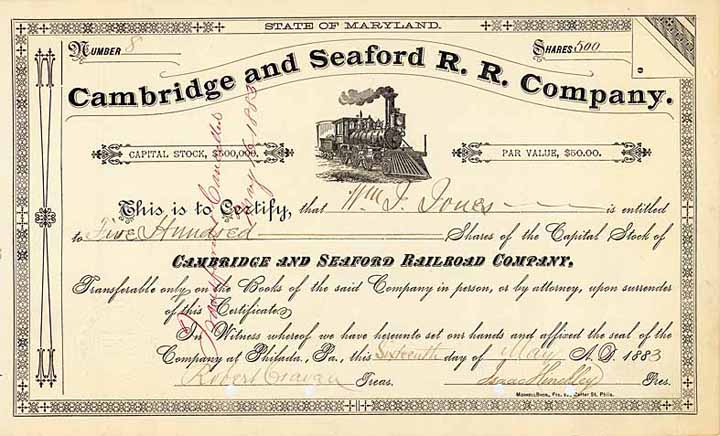 STATE OF MARYLAND.
NUMBER 8
SHARES 500
Cambridge and Seaford R. R. Company.
CAPITAL STOCK, $500,000.
PAR VALUE, $50.00.
This is to Certify, that Wm J. Jones is entitled
to Five Hundred Shares of the Capital Stock of
CAMBRIDGE AND SEAFORD RAILROAD COMPANY,
Transferable only on the Books of the said Company in person, or by attorney, upon surrender
of this Certificate
In Witness whereof we have hereunto set our hands and affixed the seal of the
Company at Philada, Pa., this Sixteenth day of May A. D. 1883
Robert Craven Treas. Isaac Hinckley Pres.
Cancelled
May 1883